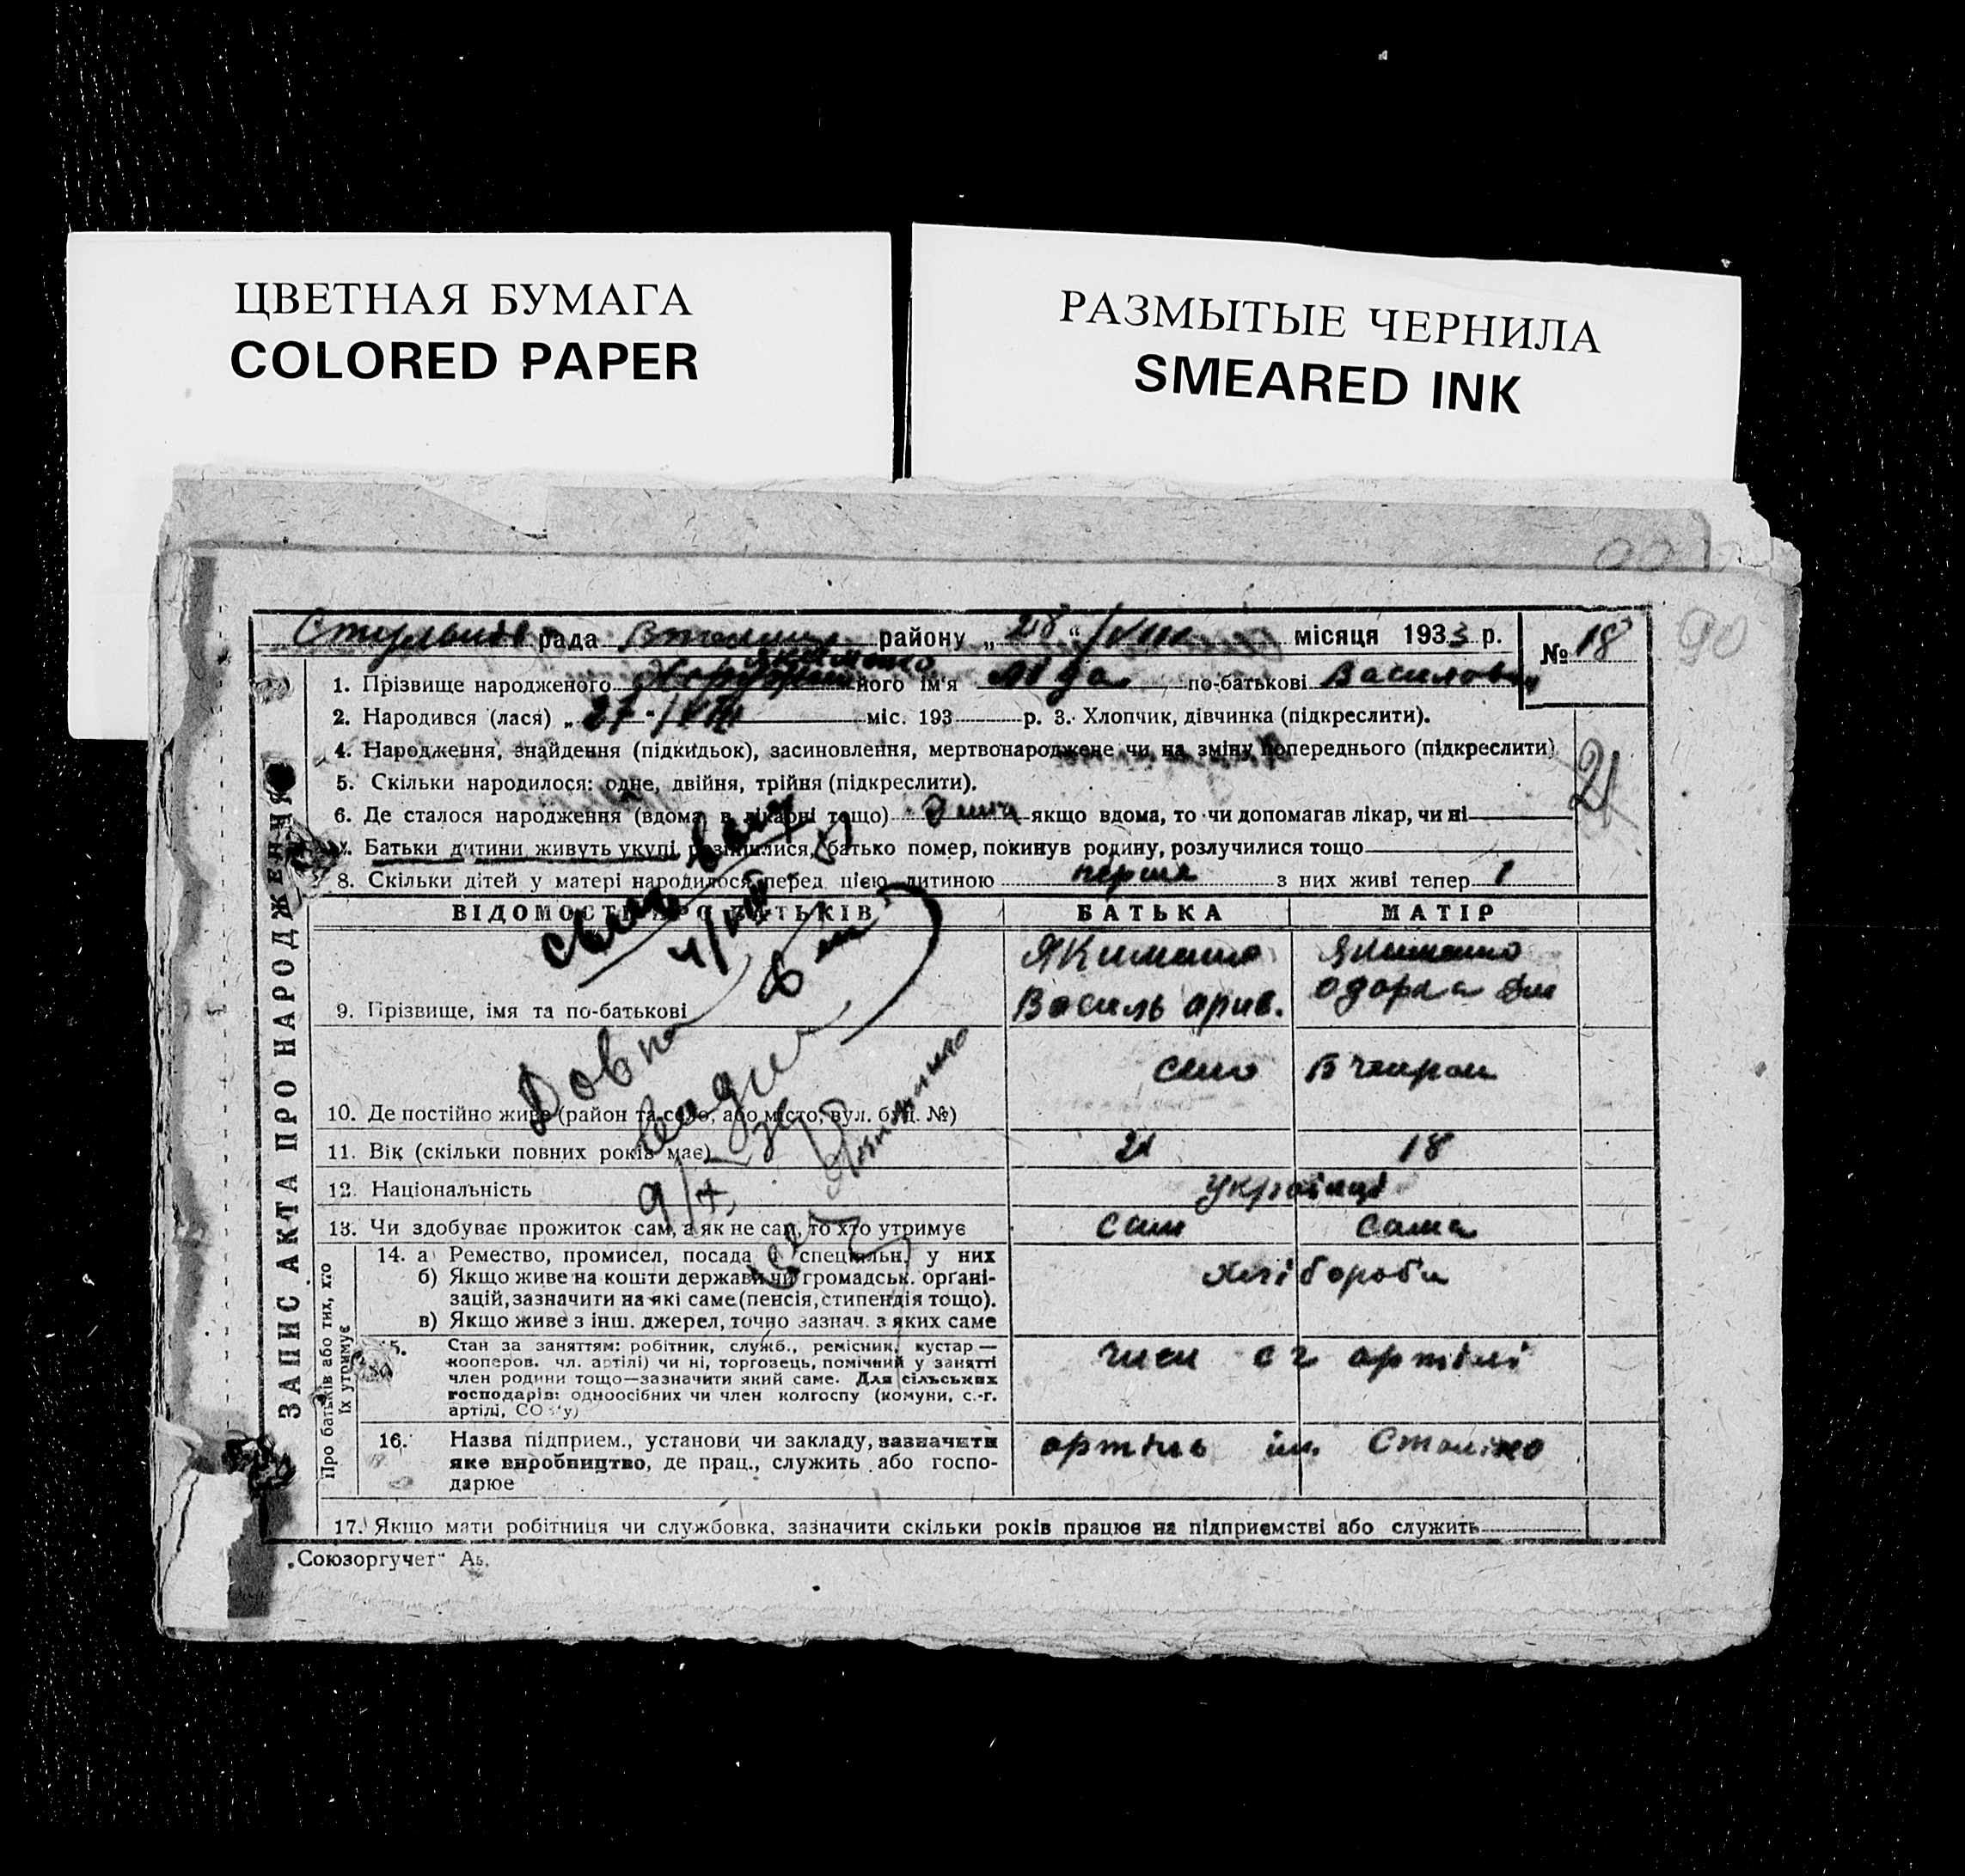 ЦВЕТНАЯ БУМАГА
COLORED PAPER
РАЗМЫТЫЕ ЧЕРНИЛА
SMEARED INK
90
рада району „28“ /VIII місяця 1933 р. № 18
Якименко
1. Прізвище народженого його ім'я Ліда по-батькові Василовн
2. Народився (лася) „27-/VIII міс. 193 р. 3. Хлопчик, дівчинка (підкреслити).
4. Народження, знайдення (підкидьок), засиновлення, мертвонароджене чи на зміну попереднього (підкреслити)
21
5. Скільки народилося: одне, двійня, трійня (підкреслити).
6. Де сталося народження (вдома, в лікарні тощо) дома якщо вдома, то чи допомагав лікар, чи ні
7. Батьки дитини живуть укупі, розійшлися, батько помер, покинув родину, розлучилися тощо
8. Скільки дітей у матері народилося перед цією дитиною перша з них живі тепер 1
ВІДОМОСТІ ПРО БАТЬКІВ БАТЬКА МАТІР
Якименко Якименко
Василь Одарка
9. Прізвище, імя та по-батькові
село
10. Де постійно живе (район та село, або місто, вул. буд. №)
11. Вік (скільки повних років має) 21 18
12. Національність Українці
13. Чи здобуває прожиток сам, а як не сам, то хто утримує сам сама
14. а) Ремество, промисел, посада і спеціяльн. у них
б) Якщо живе на кошти держави чи громадськ. органі-
зацій, зазначити на які саме (пенсія, стипендія тощо).
в) Якщо живе з інш. джерел, точно зазнач. з яких саме
хлібороби
15. Стан за заняттям: робітник, служб., ремісник, кустар—
кооперов. чл. артілі) чи ні, торговець, помічний у занятті
член родини тощо—зазначити який саме. Для сільських
господарів: одноосібних чи член колгоспу (комуни, с.-г.
артілі, СО у)
член с г артілі
16. Назва підприєм., установи чи закладу, зазначити
яке виробництво, де прац., служить або госпо-
дарює
артіль ім. Сталіна
17. Якщо мати робітниця чи службовка, зазначити скільки років працює на підприємстві або служить
ЗАПИС АКТА ПРО НАРОДЖЕННЯ
Про батьків або тих, хто
їх утримує
„Союзоргучет“